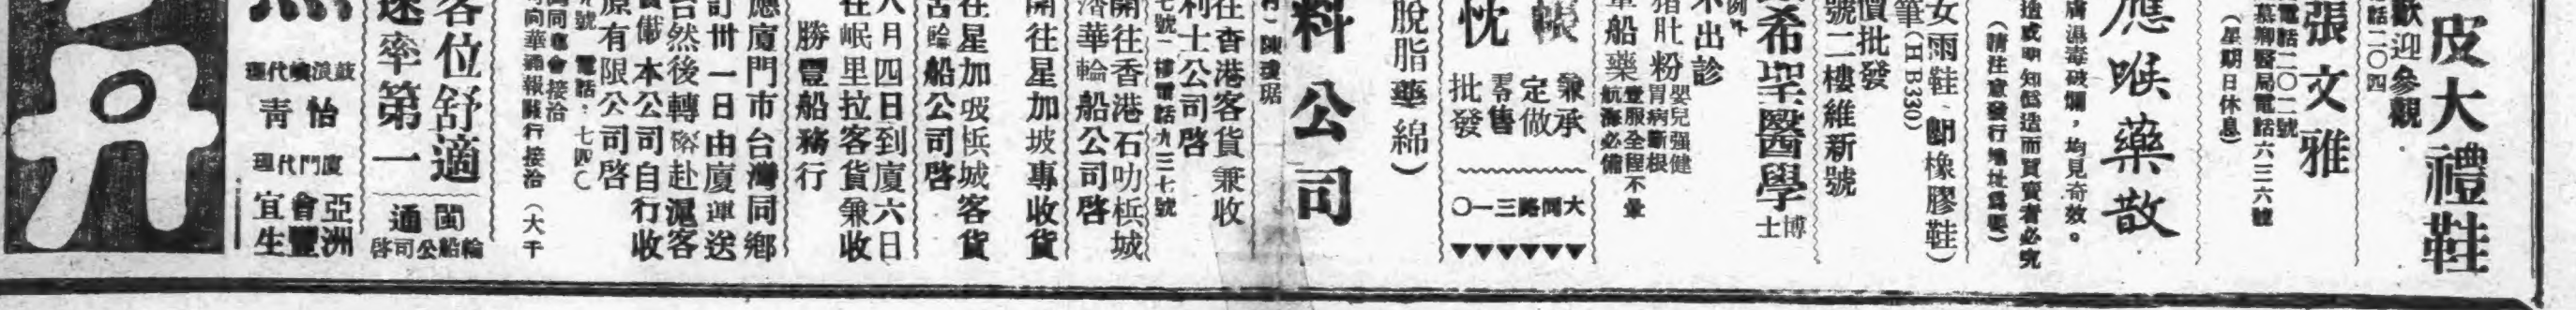 皮大禮鞋
歡迎參觀
話二〇四
張文雅
電話二〇二號
醫局電話六三六號
(星期日休息)
應喉藥散
膚濕毒破爛，均見奇效。
造或明知僞造而買賣者必究
(請注意發行地址爲要)
女雨鞋 膠橡膠鞋)
筆(HB330)
價批發
號二樓維新號
希聖醫學博士
不出診
猪肚粉
嬰兒强健
胃病斷根
船藥
壹服全程不暈
航海必備
帳
兼承定做
零售批發
大同路三一〇
脫脂藥綿)
料公司
陳瓊琚
往香港客貨兼收
利士公司啓
七號二樓電話九三七號
開往香港石叻梹城
華輪船公司啓
開往星加坡專收貨
往星加坡梹城客貨
古輪船公司啓
八月四日到廈六日
往岷里拉客貨兼收
勝豐船務行
應廈門市台灣同鄉
訂卅一日由廈運送
台然後轉輪赴滬客
備本公司自行收
原有限公司啓
號 電話：七四〇
同華通報關行接洽 (大千
客位舒適
速率第一
閩通
輪船公司啓
鼓浪嶼代理
怡青
廈門代理
亞洲
會豐
宜生